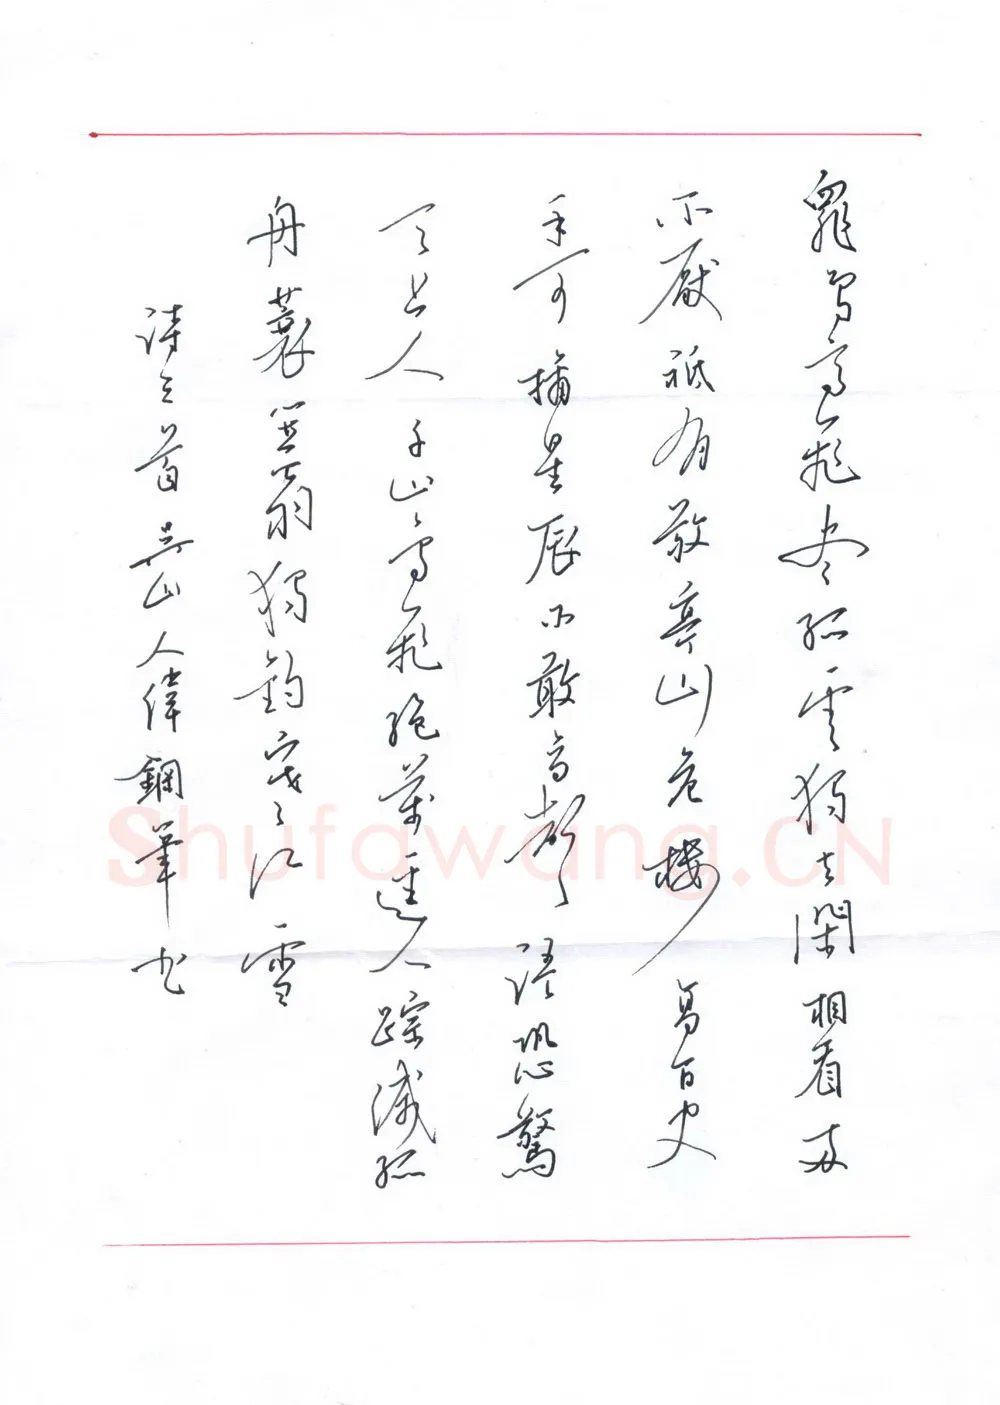 眾鳥高飛盡孤雲獨去閑相看两
不厭祗有敬亭山危樓高百尺
手可摘星辰不敢高聲語恐驚
天上人千山鳥飛絕萬逕人踪滅孤
舟蓑笠翁獨釣寒江雪
詩三首山人偉鋼筆书
Shufawang.CN